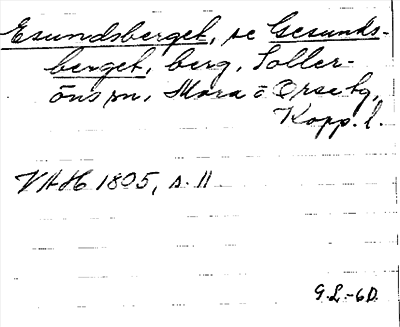 Esundsberget, se Gesunds-
berget, berg, Soller-
öns sn, Mora o Orsa tg,
Kopp. l.
VAH 1805, s. 11
G.L.-60.